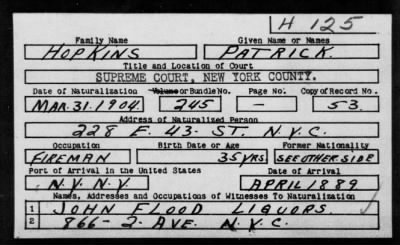 H 125
Family Name Given Name or Names
HOPKINS PATRICK.
Title and Location of Court
SUPREME COURT, NEW YORK COUNTY.
Date of Naturalization Volume or Bundle No. Page No. Copy of Record No.
MAR. 31. 1904. 245 — 53.
Address of Naturalized Person
228 E. 43. ST. N.Y.C.
Occupation Birth Date or Age Former Nationality
FIREMAN 35 YRS SEE OTHER SIDE
Port of Arrival in the United States Date of Arrival
N.Y. N.Y. APRIL 1889
Names, Addresses and Occupations of Witnesses To Naturalization
1 JOHN FLOOD LIQUORS.
2 866 - 2. AVE. N.Y.C.